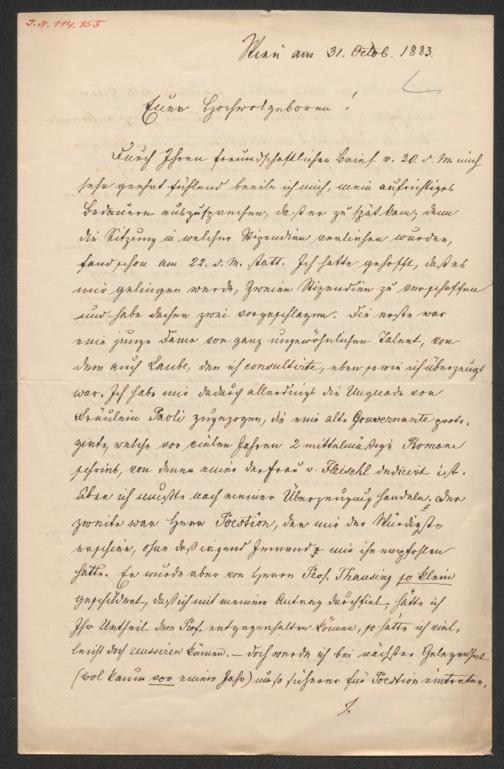 J.N. 114.155
Wien am 31. Octob. 1883.
Euer Hochwolgeboren!
Durch Ihren freundschaftlichen Brief v. 30. d. M. mich
sehr geehrt fühlend beeile ich mich, mein aufrichtiges
Bedauern auszusprechen, daß er zu spät kam; denn
die Sitzung in welcher Stipendien verliehen wurden,
fand schon am 22. d. M. statt. Ich hatte gehofft, daß es
mir gelingen werde, zweien Stipendien zu verschaffen
und habe daher zwei vorgeschlagen. Die erste war
eine junge Dame von ganz ungewöhnlichem Talent, von
dem auch Laube, den ich consultirte, eben so wie ich überzeugt
war. Ich habe mir dadurch allerdings die Ungnade von
Fräulein Paoli zugezogen, die eine alte Gouvernante prote-
girte, welche vor vielen Jahren 2 mittelmäßige Romane
schrieb, von denen einer der Frau v. Fleischl dedicirt ist.
Aber ich mußte nach meiner Überzeugung handeln. Der
zweite war Herr Poestion, der mir der Würdigste
erschien, ohne daß irgend Jemand mir ihn empfohlen
hätte. Er wurde aber von Herrn Prof. Thausing so klein
geschildert, daß ich mit meinem Antrag durchfiel; hätte ich
Ihr Urtheil dem Prof. entgegenhalten können, so hätte ich viel-
leicht doch reussieren können. – Doch werde ich bei nächster Gelegenheit
(wol kaum vor einem Jahr) um so sicherer für Poestion eintreten.